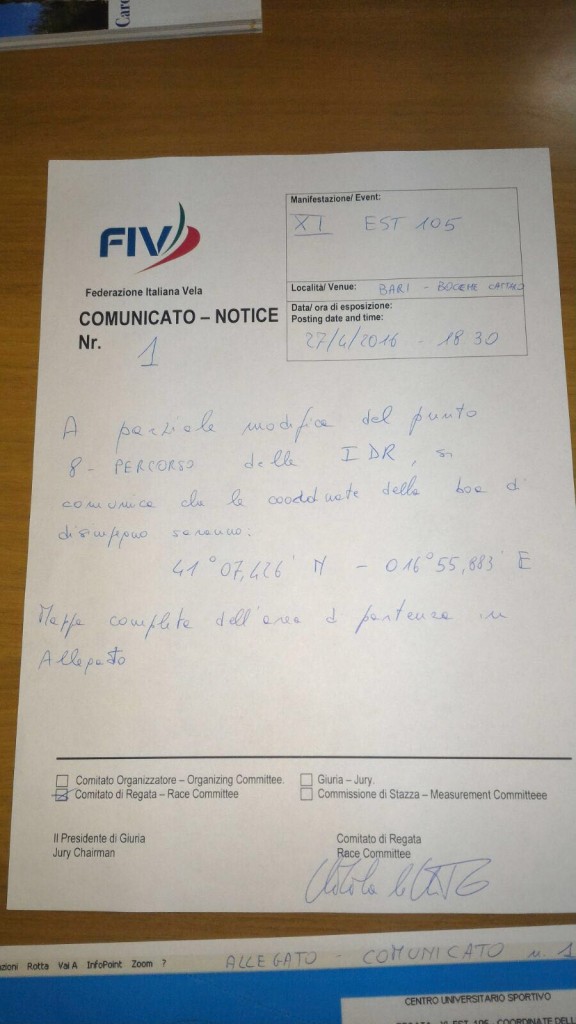 Card
FIV
Federazione Italiana Vela
COMUNICATO – NOTICE
Nr. 1
Manifestazione/ Event:
XI EST 105
Località/ Venue: BARI - BOCCHE CATTARO
Data/ ora di esposizione:
Posting date and time:
27/4/2016 - 18 30
A parziale modifica del punto
8 - PERCORSO delle IDR, si
comunica che le coordinate della boa di
disimpegno saranno:
41° 07,426' N - 016° 55,883' E
Mappa completa dell'area di partenza in
Allegato
Comitato Organizzatore – Organizing Committee.
Comitato di Regata – Race Committee
Giuria – Jury.
Commissione di Stazza – Measurement Committeee
Il Presidente di Giuria
Jury Chairman
Comitato di Regata
Race Committee
azioni Rotta Vai A InfoPoint Zoom ?
ALLEGATO - COMUNICATO n. 1
CENTRO UNIVERSITARIO SPORTIVO
XI EST 105 - COORDINATE DELL